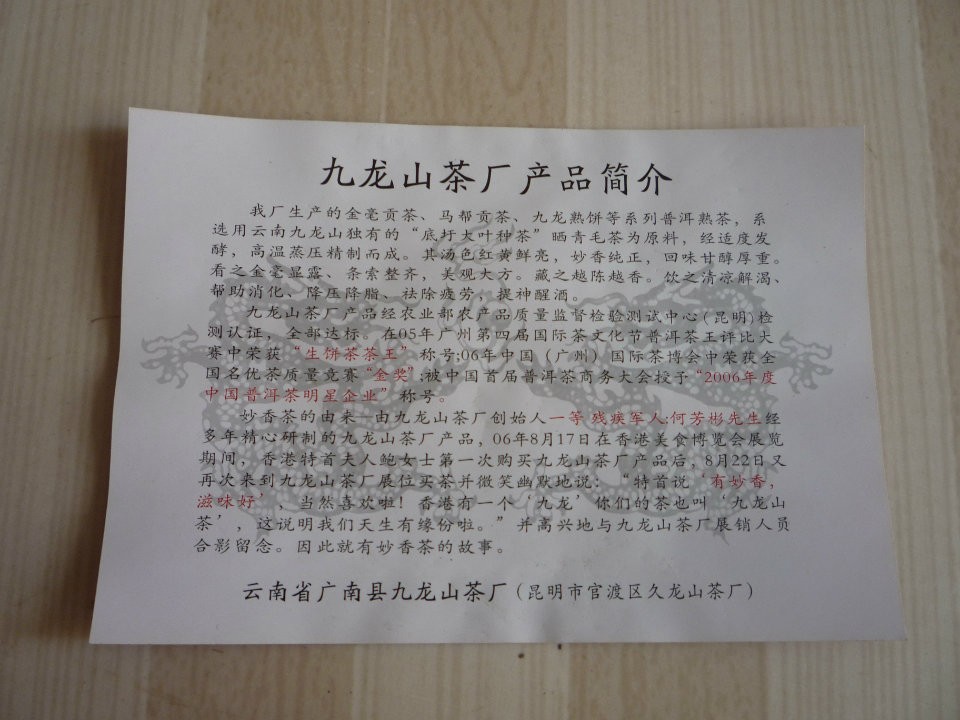 九龙山茶厂产品简介
我厂生产的金毫贡茶、马帮贡茶、九龙熟饼等系列普洱熟茶，系
选用云南九龙山独有的“底圩大叶种茶”晒青毛茶为原料，经适度发
酵，高温蒸压精制而成。其汤色红黄鲜亮，妙香纯正，回味甘醇厚重。
看之金毫显露、条索整齐，美观大方。藏之越陈越香。饮之清凉解渴、
帮助消化、降压降脂、祛除疲劳，提神醒酒。
九龙山茶厂产品经农业部农产品质量监督检验测试中心(昆明)检
测认证，全部达标。在05年广州第四届国际茶文化节普洱茶王评比大
赛中荣获“生饼茶茶王”称号;06年中国（广州）国际茶博会中荣获全
国名优茶质量竞赛“金奖”;被中国首届普洱茶商务大会授予“2006年度
中国普洱茶明星企业”称号。
妙香茶的由来—由九龙山茶厂创始人一等残疾军人:何芳彬先生经
多年精心研制的九龙山茶厂产品，06年8月17日在香港美食博览会展览
期间，香港特首夫人鲍女士第一次购买九龙山茶厂产品后，8月22日又
再次来到九龙山茶厂展位买茶并微笑幽默地说：“特首说‘有妙香，
滋味好’，当然喜欢啦！香港有一个‘九龙’你们的茶也叫‘九龙山
茶’，这说明我们天生有缘份啦。”并高兴地与九龙山茶厂展销人员
合影留念。因此就有妙香茶的故事。
云南省广南县九龙山茶厂(昆明市官渡区久龙山茶厂)